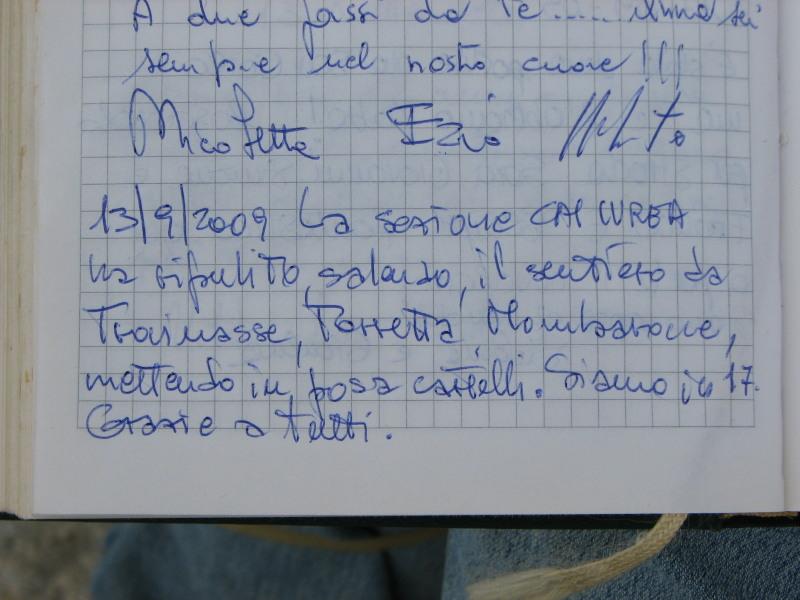 A due passi da Te..... Anna sei
sempre nel nostro cuore !!!
Nicoletta Ezio
13/9/2009 La sezione CAI IVREA
ha ripulito, salendo, il sentiero da
Trovinasse, Torretta, Mombarone,
mettendo in posa cartelli. Siamo in 17.
Grazie a tutti.